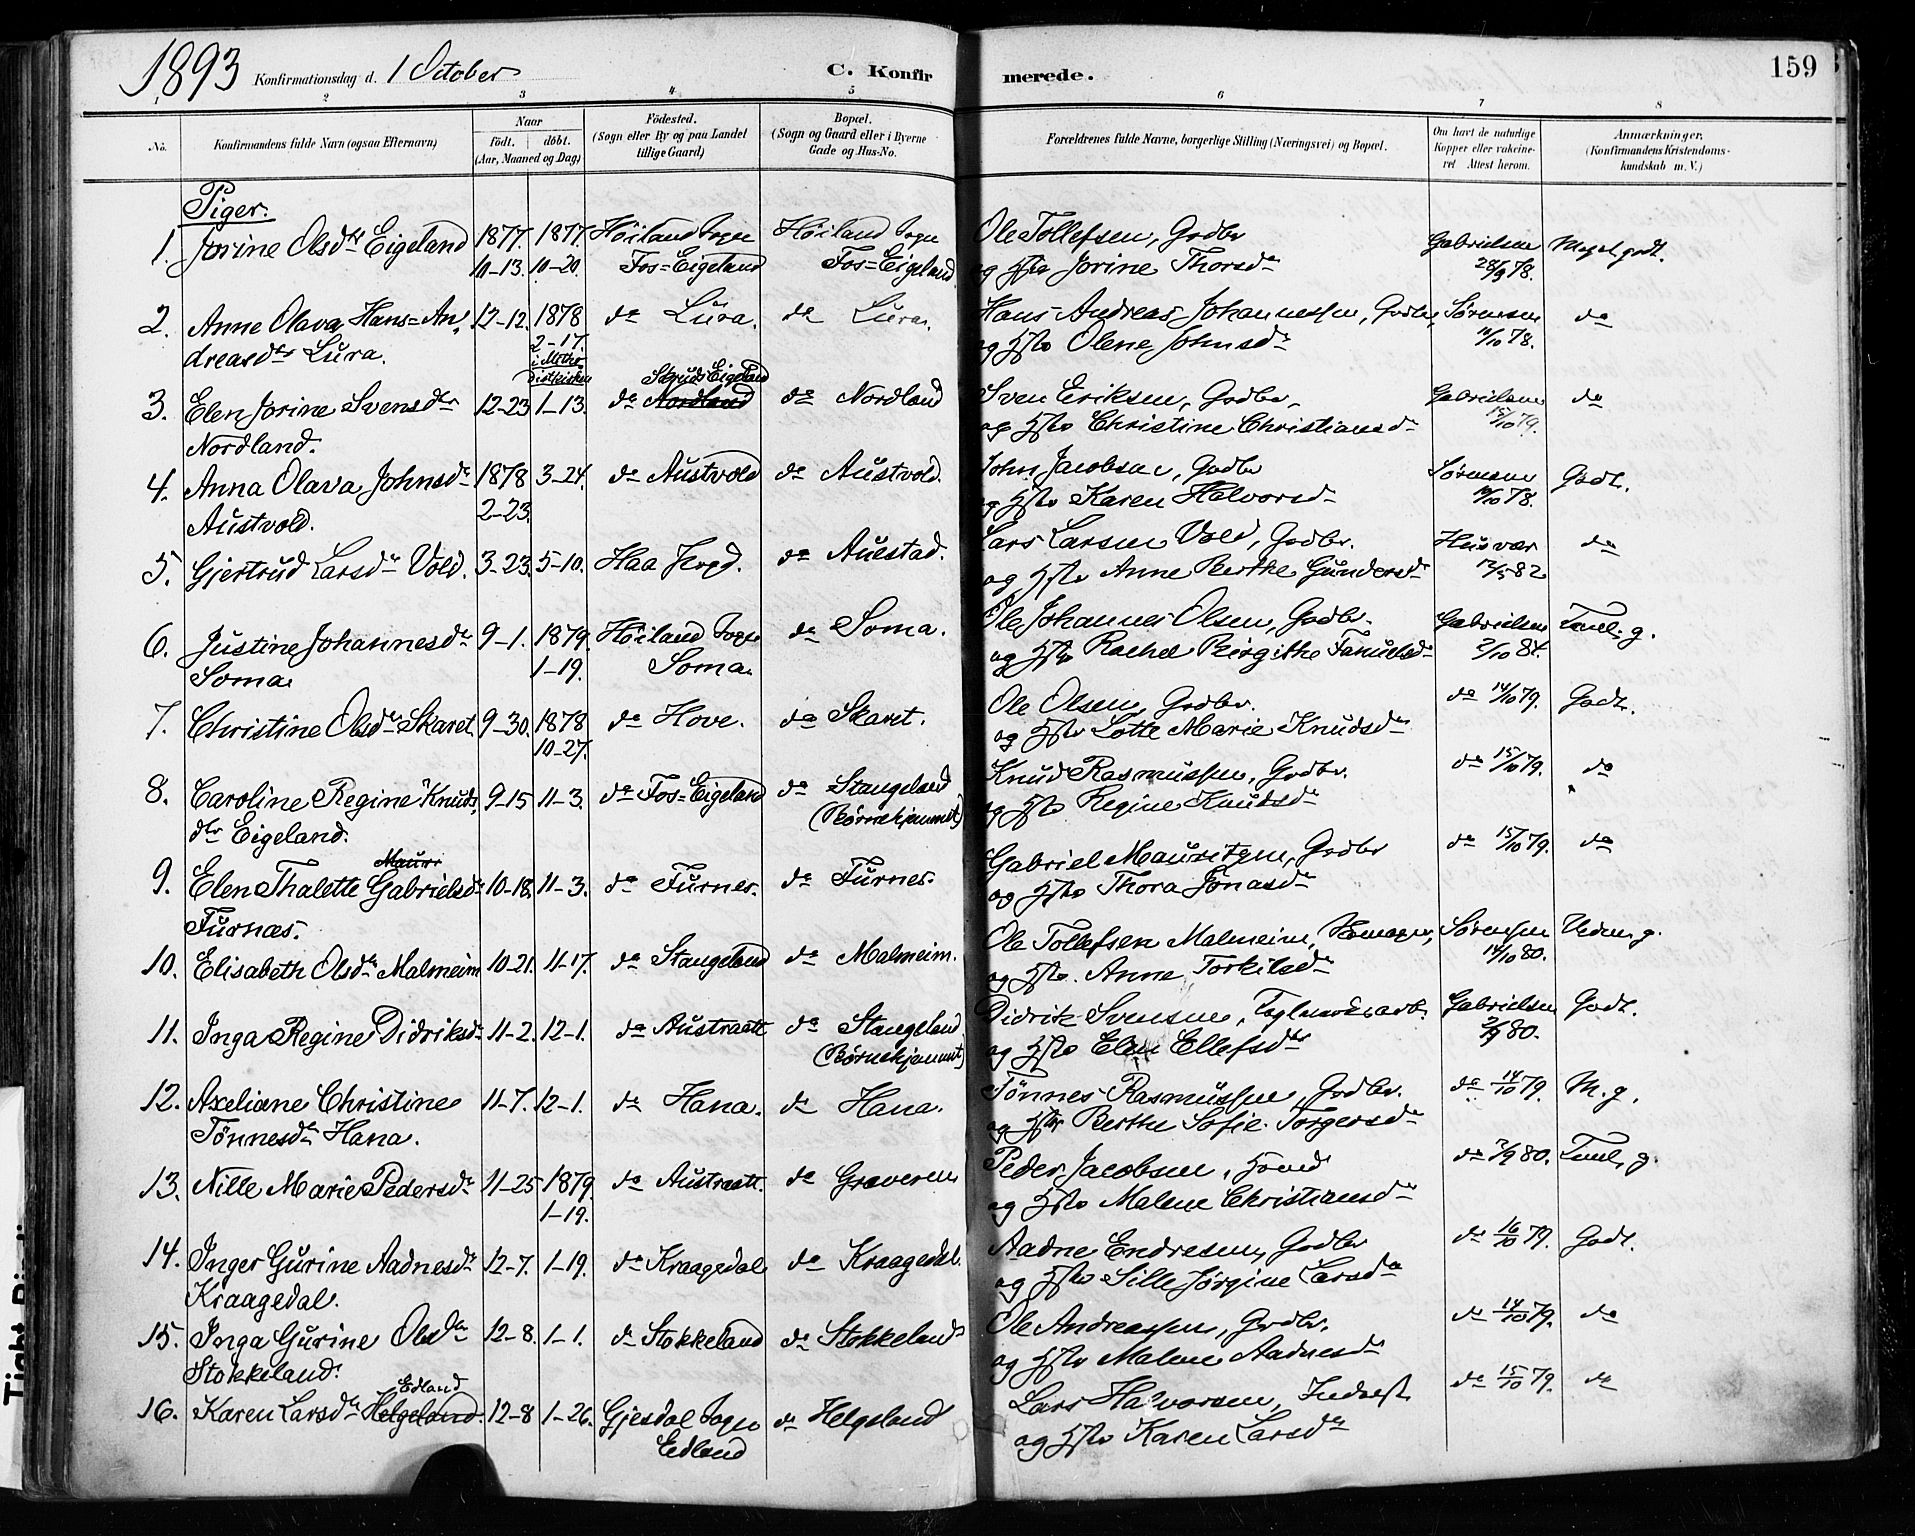 1893 Konfirmationsdag d. 1 October C. Konfirmerede. 159
1 2 3 4 5 6 7 8
No. Konfirmandens fulde Navn (ogsaa Efternavn) Naar født. døbt. (Aar, Maaned og Dag) Fødested. (Sogn eller By og paa Landet tillige Gaard) Bopæl. (Sogn og Gaard eller i Byerne Gade og Hus-No. Forældrenes fulde Navne, borgerlige Stilling (Næringsvei) og Bopæl. Om havt de naturlige Kopper eller vakcineret Attest herom. Anmærkninger, (Konfirmandens Kristendomskundskab m. V.)
Piger.
1. Jorine Olsdtr Eigeland 1877. 1877. Höiland Sogn Höiland Sogn Ole Tollefsen, Grdbr Gabrielsen Meget godt.
10-13. 10-20. Fos=Eigeland Fos=Eigeland og Hstr Jorine Thorsdr 28/9 78.
2. Anne Olava Hans=An, 12-12. 1878 do Lura. do Lura. Hans Andreas Johannessen, Grdbr, Sørensen do
dreasdtr Lura. 2-17. og Hstr Olene Johnsdr 78.
i Metho
distkirken Skruds Eigeland
3. Elen Jorine Svensdtr 12-23 1-13. do Nordland do Nordland Sven Eriksen, Grdbr. Gabrielsen do
Nordland. og Hstr Christine Christiansdr 15/10 79.
4. Anna Olava Johnsdr 1878 3-24. do Austvold do Austvold. John Jacobsen, Grdbr Sørensen Godt.
Austvold. 2-23. og Hstr Karen Halvorsdr 78.
5. Gjertrud Larsdr Vold. 3-23. 5-10. Haa Prgd. do Auestad. Lars Larsen Vold, Grdbr. Husvær do
og Hstr Anne Berthe Gundersdr 82
6. Justine Johannesdr 9-1. 1879. Höiland Sogn do Soma. Ole Johannes Olsen, Grdbr. Gabrielsen g.
Soma. 1-19. Soma. og Hstr Rachel Birgithe Tanuelsdr 2/10 84.
7. Christine Olsdr Skaret 9-30. 1878 do Hove. do Skaret. Ole Olsen, Grdbr. do 14/10 79. Godt.
10-27. og Hstr Lotte Marie Knudsdr
8. Caroline Regine Knuds, 9-15 11-3. do Fos=Eigeland do Stangeland Knud Rasmussen, Grdbr. do 15/10 79. do
dtr Eigeland. (Børnehjemmet) og Hstr Regine Knudsdr
Mauri
9. Elen Thalette Gabrielsdr 10-18. 11-3. do Furnes. do Furnes. Gabriel Mauritzen, Grdbr do 15/10 79. do
Furnæs. og Hstr Thora Jonasdr
10. Elisabeth Olsdr Malmeim 10-21. 11-17. do Stangeland do Malmeim. Ole Tollefsen Malmeim, Sørensen g.
og Hstr. Anne Torkilsdr 14/10 80.
11. Inga Regine Didriksdr 11-2. 12-1. do Austraatt do Stangeland Didrik Svensen, Teglværksarb. Gabrielsen Godt.
(Børnehjemmet) og Hstr Elen Ellefsdtr 80.
12. Axeliane Christine 11-7. 12-1. do Hana. do Hana. Tönnes Rasmussen, Grdbr. do 14/10 79. M. g.
Tönnesdr Hana. og Hstr Berthe Sofie Torgersdr
13. Nille Marie Pedersdr 11-25 1879. do Austraatt. do Graveren Peder Jacobsen, do 80. g.
1-19. og Hstr Malene Christiansdr
14. Inger Gurine Aadnesdr 12-7. 1-19. do Kraagedal do Kraagedal. Aadne Endresen, Grdbr do 16/10 79. Godt.
Kraagedal. og Hstr Sille Jörgine Larsdr
15. Inga Gurine Olsdr 12-8. 1-1. do Stokkeland do Stokkeland Ole Andreassen, Grdbr. do 14/10 79. do
Stokkeland. og Hstr Malene Aadnesdr
Edland
16. Karen Larsdr Helgeland. 12-8 1-26. Gjesdal Sogn do Helgeland Lars Halvorsen, Inderst do 15/10 79. do
Edland og Hstr Karen Larsdr